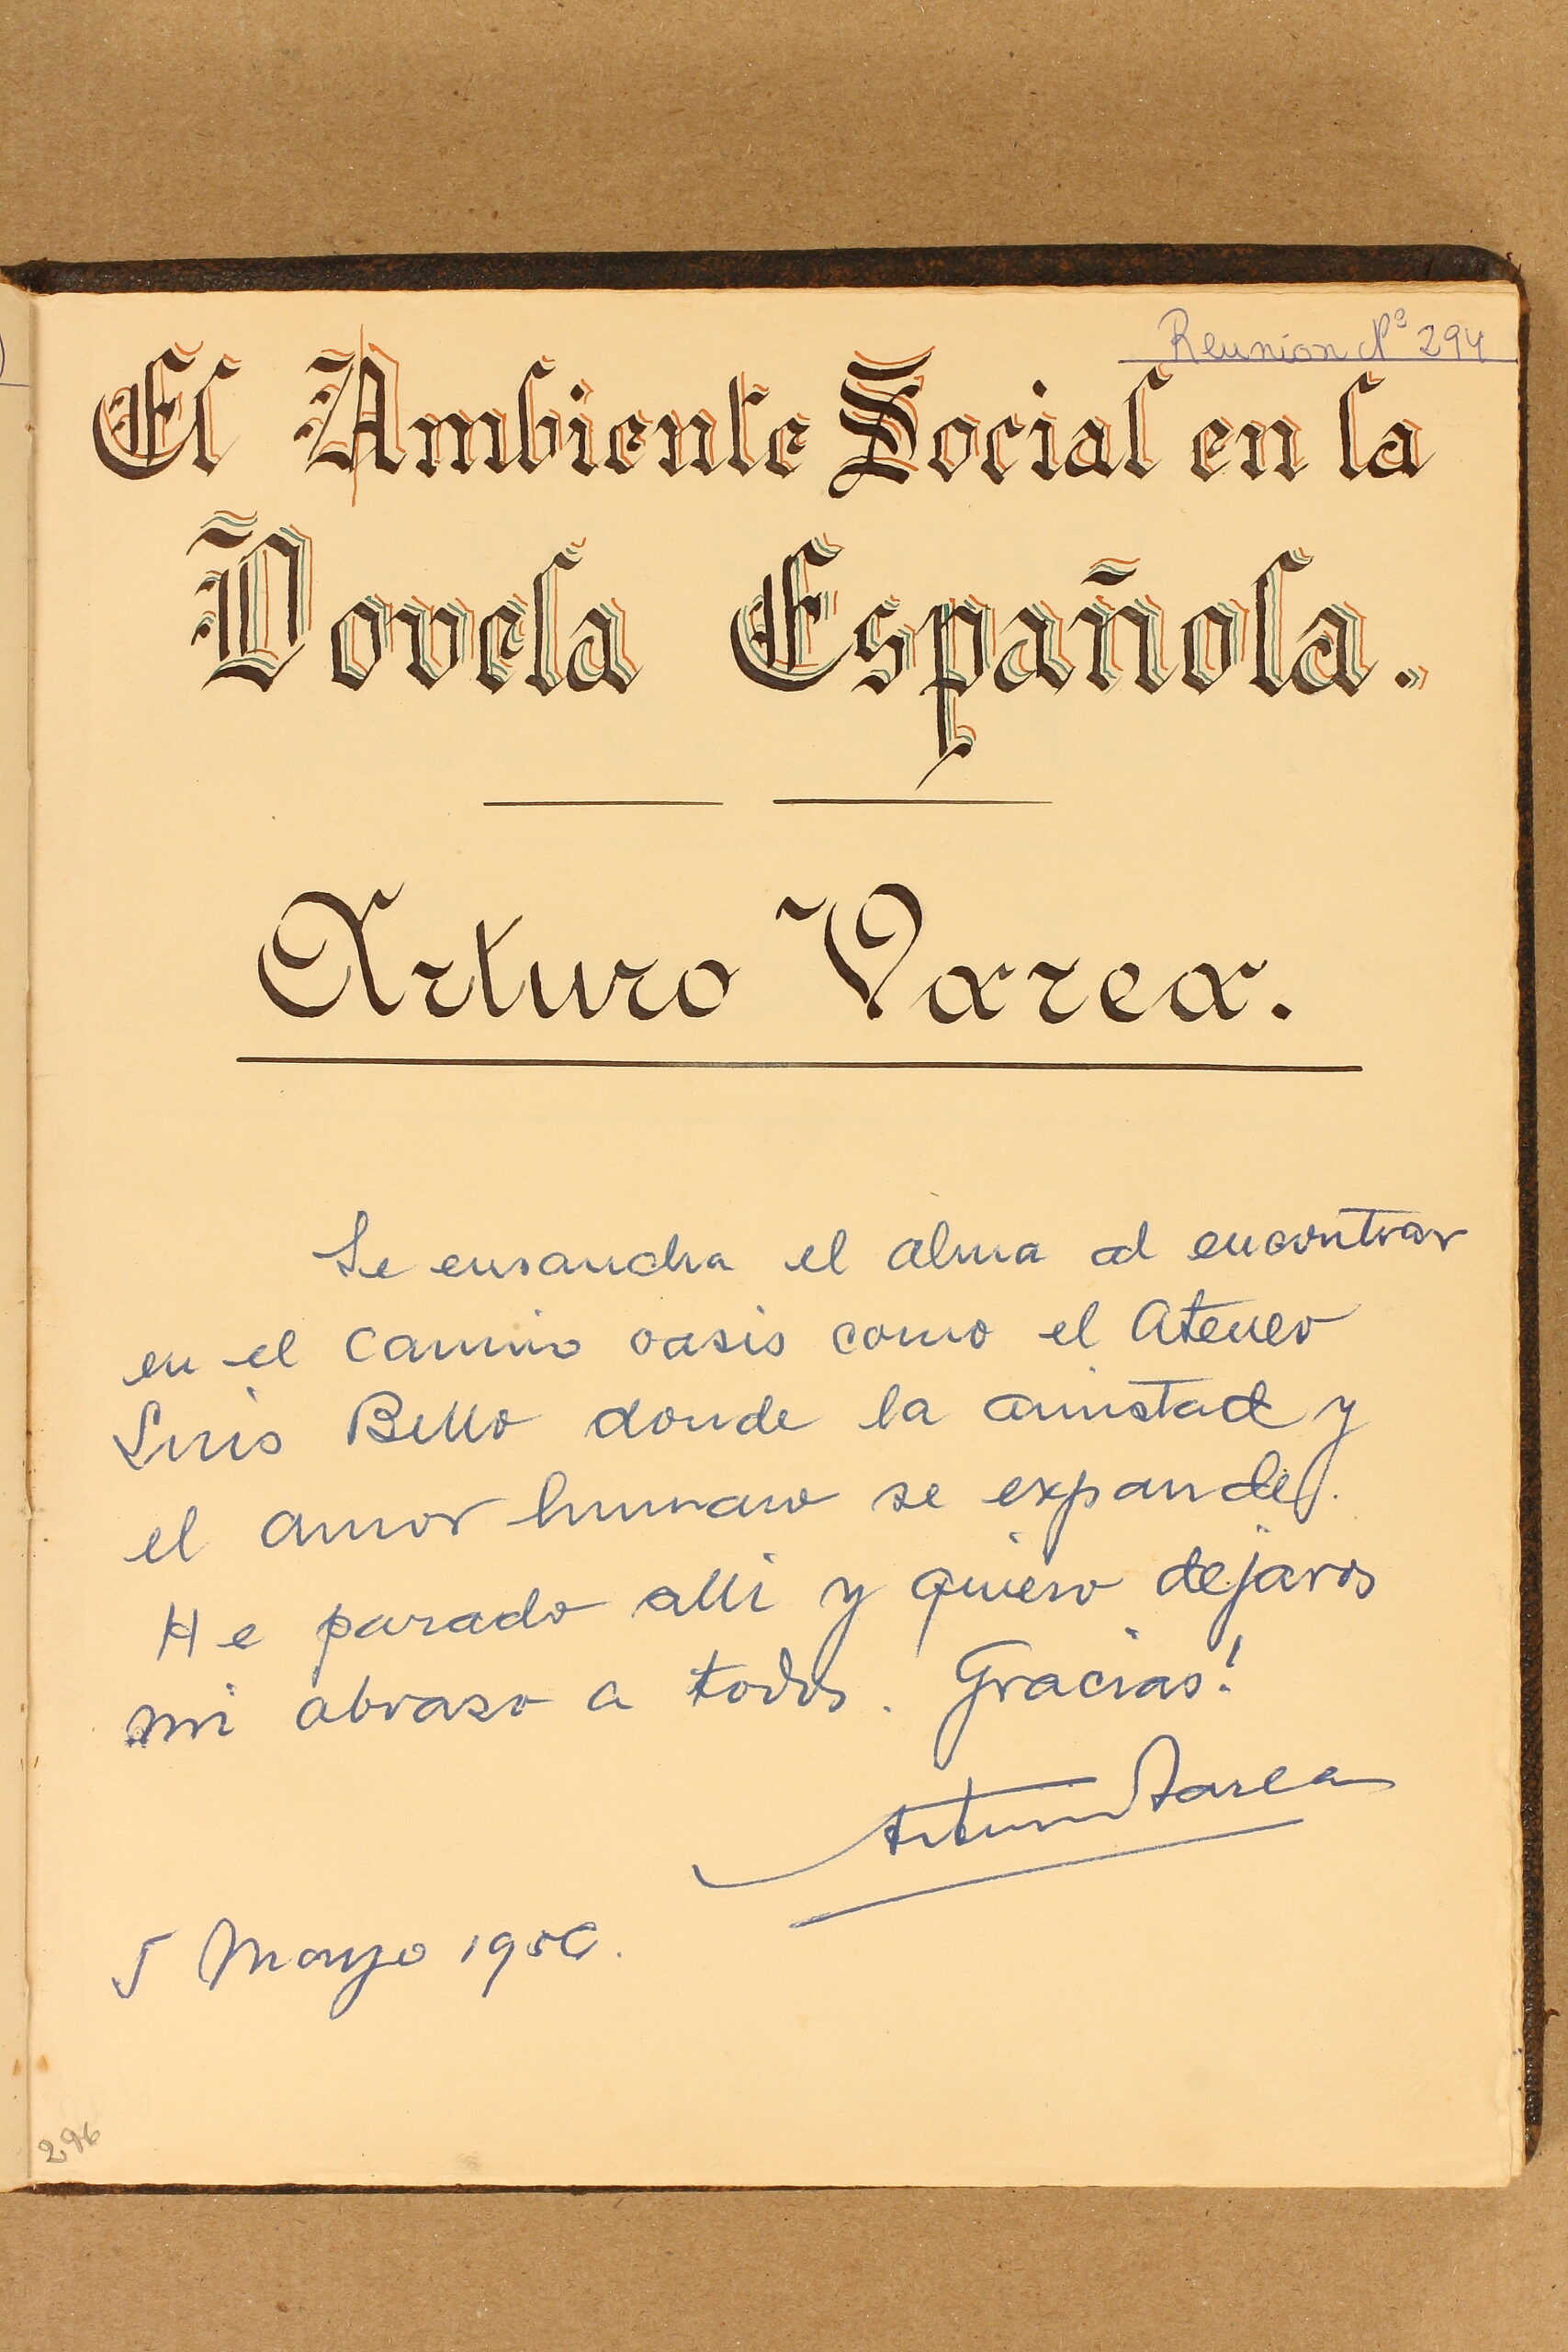 Reunion Nº 294
El Ambiente Social en la
Novela Española.
Arturo Varea.
Se ensancha el alma al encontrar
en el camino oasis como el Ateneo
Luis Bello donde la amistad y
el amor humano se expande.
He parado alli y quiero dejaros
mi abraso a todos. Gracias!
Arturo Barea
5 Mayo 1956.
296